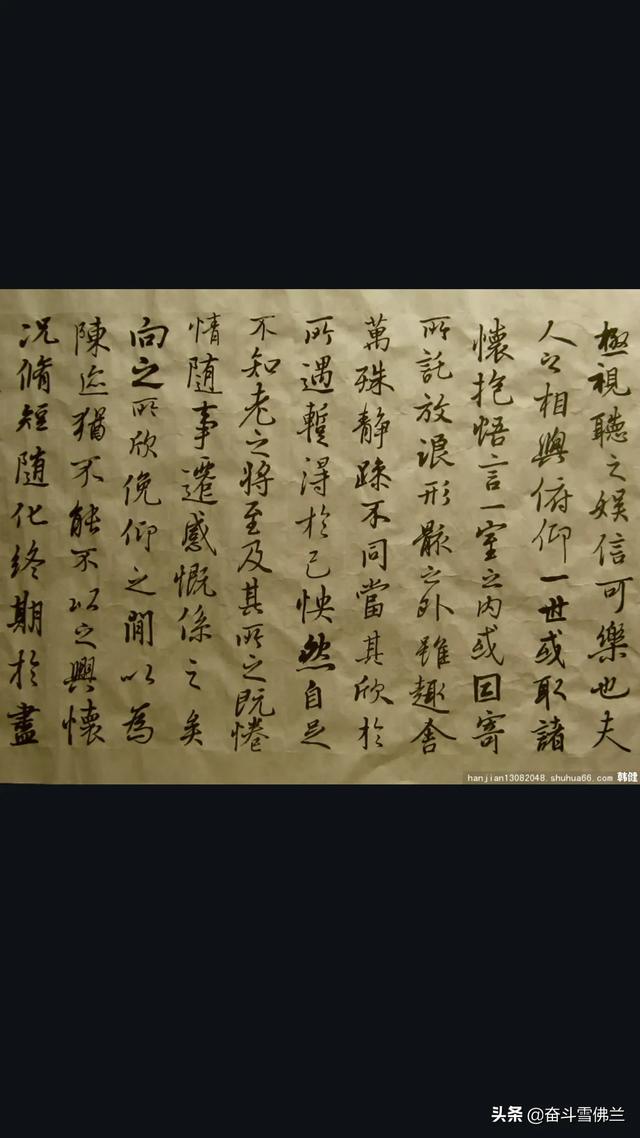 極視聽之娛信可樂也夫
人之相與俯仰一世或取諸
懷抱悟言一室之内或因寄
所託放浪形骸之外雖趣舍
萬殊静躁不同當其欣於
所遇暫得於己怏然自足
不知老之將至及其所之既惓
情随事遷感慨係之矣
向之所欣俛仰之間以為
陳迹猶不能不以之興懷
况脩短随化終期於盡
hanjian13082048.shuhua66.com 韩健
头条 @奋斗雪佛兰